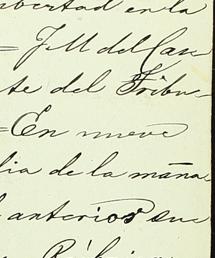 libertad en la
= J. M del Cas
te del Tribu-
=En nueve
dia de la maña
l anterior sue